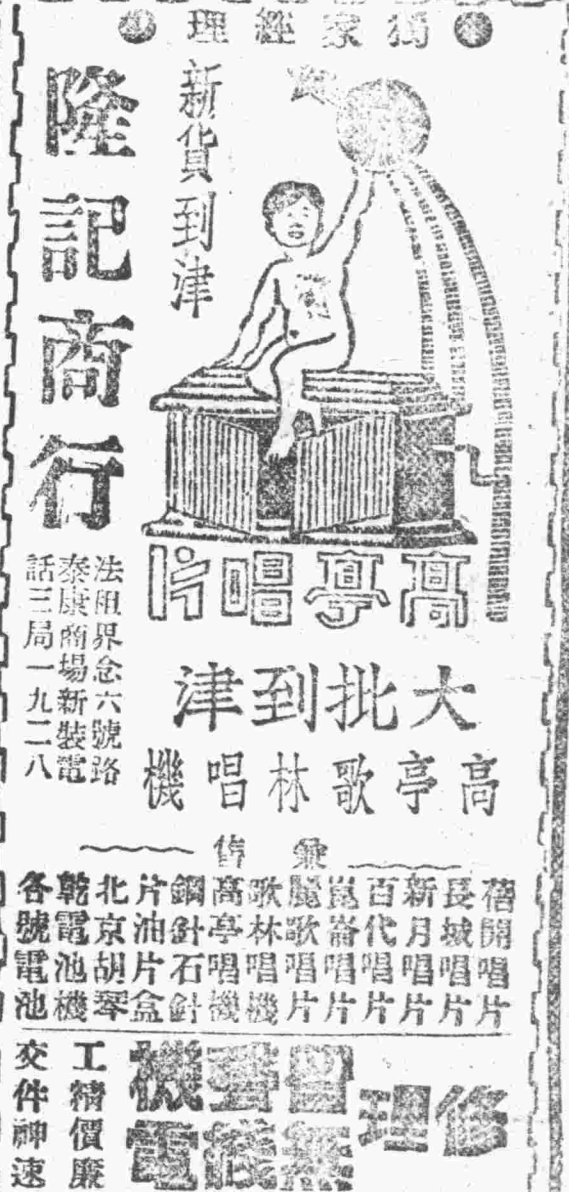 獨家經理
新貨到津
隆記商行
法租界念六號路
泰康商場新裝電
話三局一九二八
高亭唱片
大批到津
高亭歌林唱機
兼售
蓓開唱片
長城唱片
新月唱片
百代唱片
崑崙唱片
麗歌唱片
歌林唱機
高亭唱機
鋼針石針
片油片盒
北京胡琴
乾電池機
各號電池
修理
留聲機
無線電
工精價廉
交件神速